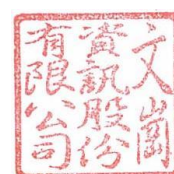 文崗
資訊股份
有限公司